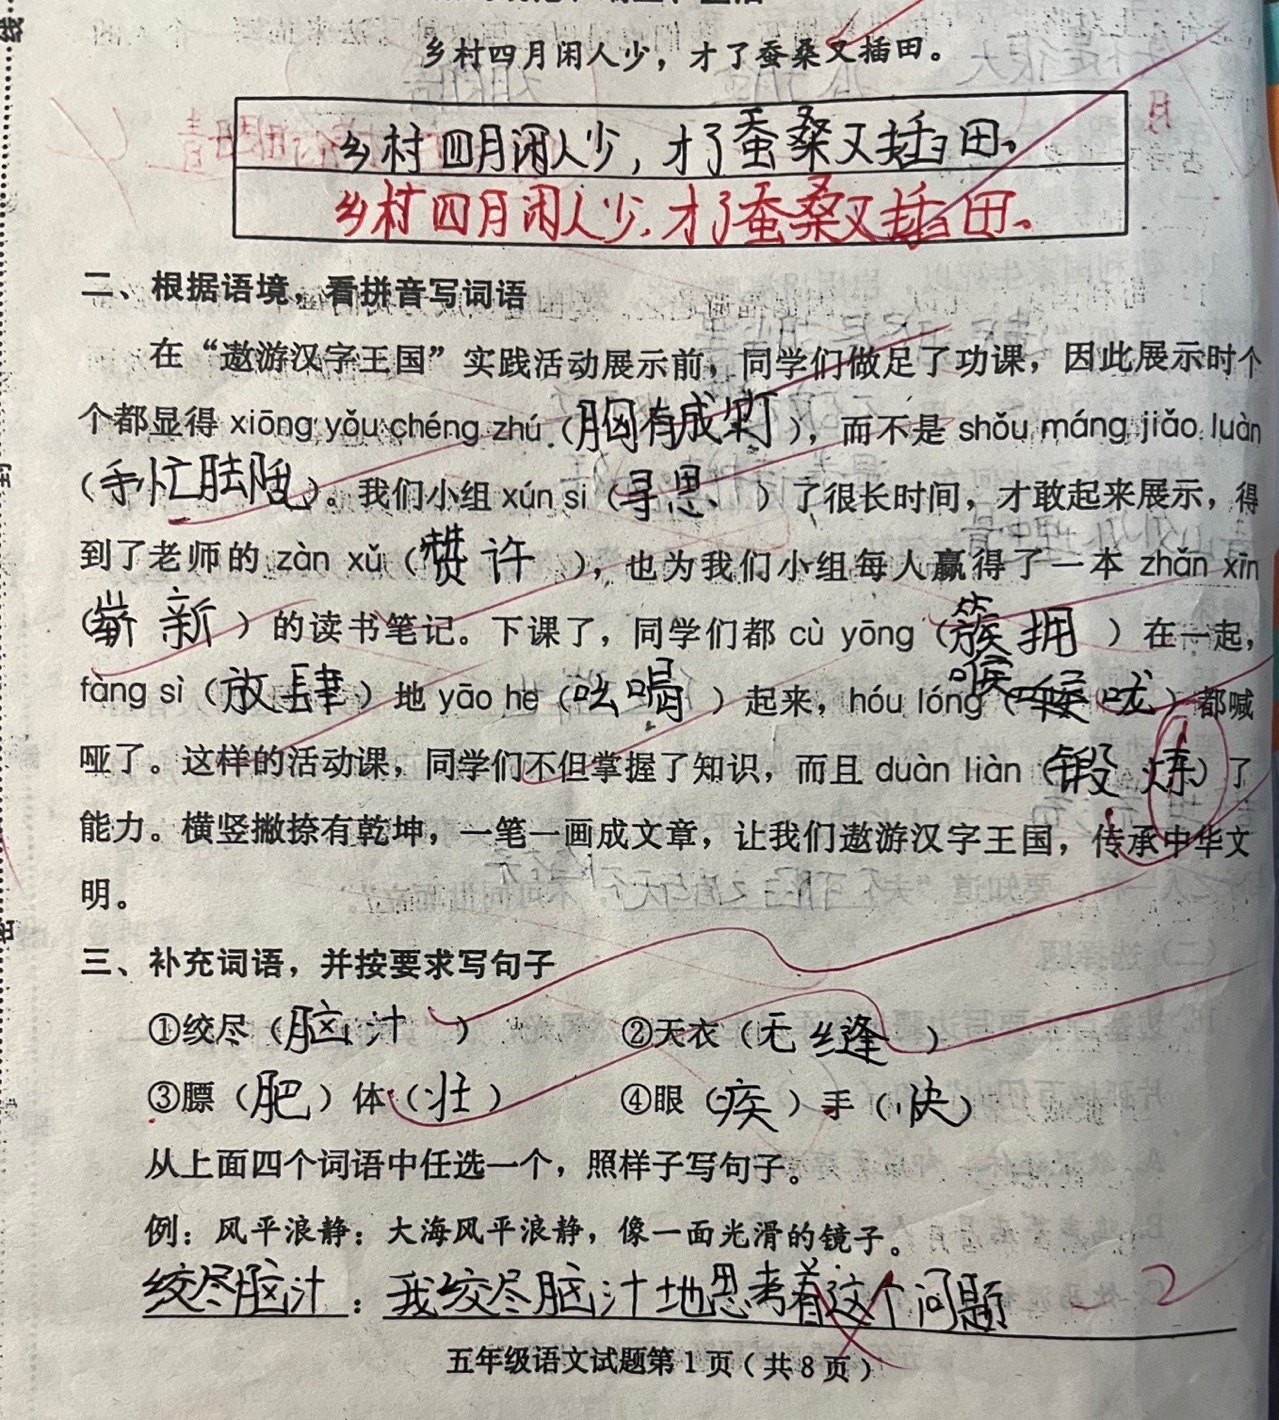 乡村四月闲人少，才了蚕桑又插田。
乡村四月闲人少，才了蚕桑又插田。
乡村四月闲人少，才了蚕桑又插田。
二、根据语境，看拼音写词语
在“遨游汉字王国”实践活动展示前，同学们做足了功课，因此展示时个
个都显得 xiōng yǒu chéng zhú（胸有成竹），而不是 shǒu máng jiǎo luàn
（手忙脚乱）。我们小组 xún si（寻思）了很长时间，才敢起来展示，得
到了老师的 zàn xǔ（赞许），也为我们小组每人赢得了一本 zhǎn xīn
（崭新）的读书笔记。下课了，同学们都 cù yōng（簇拥）在一起，
fàng sì（放肆）地 yāo he（吆喝）起来，hóu lóng（喉咙）都喊
哑了。这样的活动课，同学们不但掌握了知识，而且 duàn liàn（锻炼）了
能力。横竖撇捺有乾坤，一笔一画成文章，让我们遨游汉字王国，传承中华文
明。
三、补充词语，并按要求写句子
①绞尽（脑汁） ②天衣（无缝）
③膘（肥）体（壮） ④眼（疾）手（快）
从上面四个词语中任选一个，照样子写句子。
例：风平浪静：大海风平浪静，像一面光滑的镜子。
绞尽脑汁：我绞尽脑汁地思考着这个问题 -2
五年级语文试题第1页（共8页）